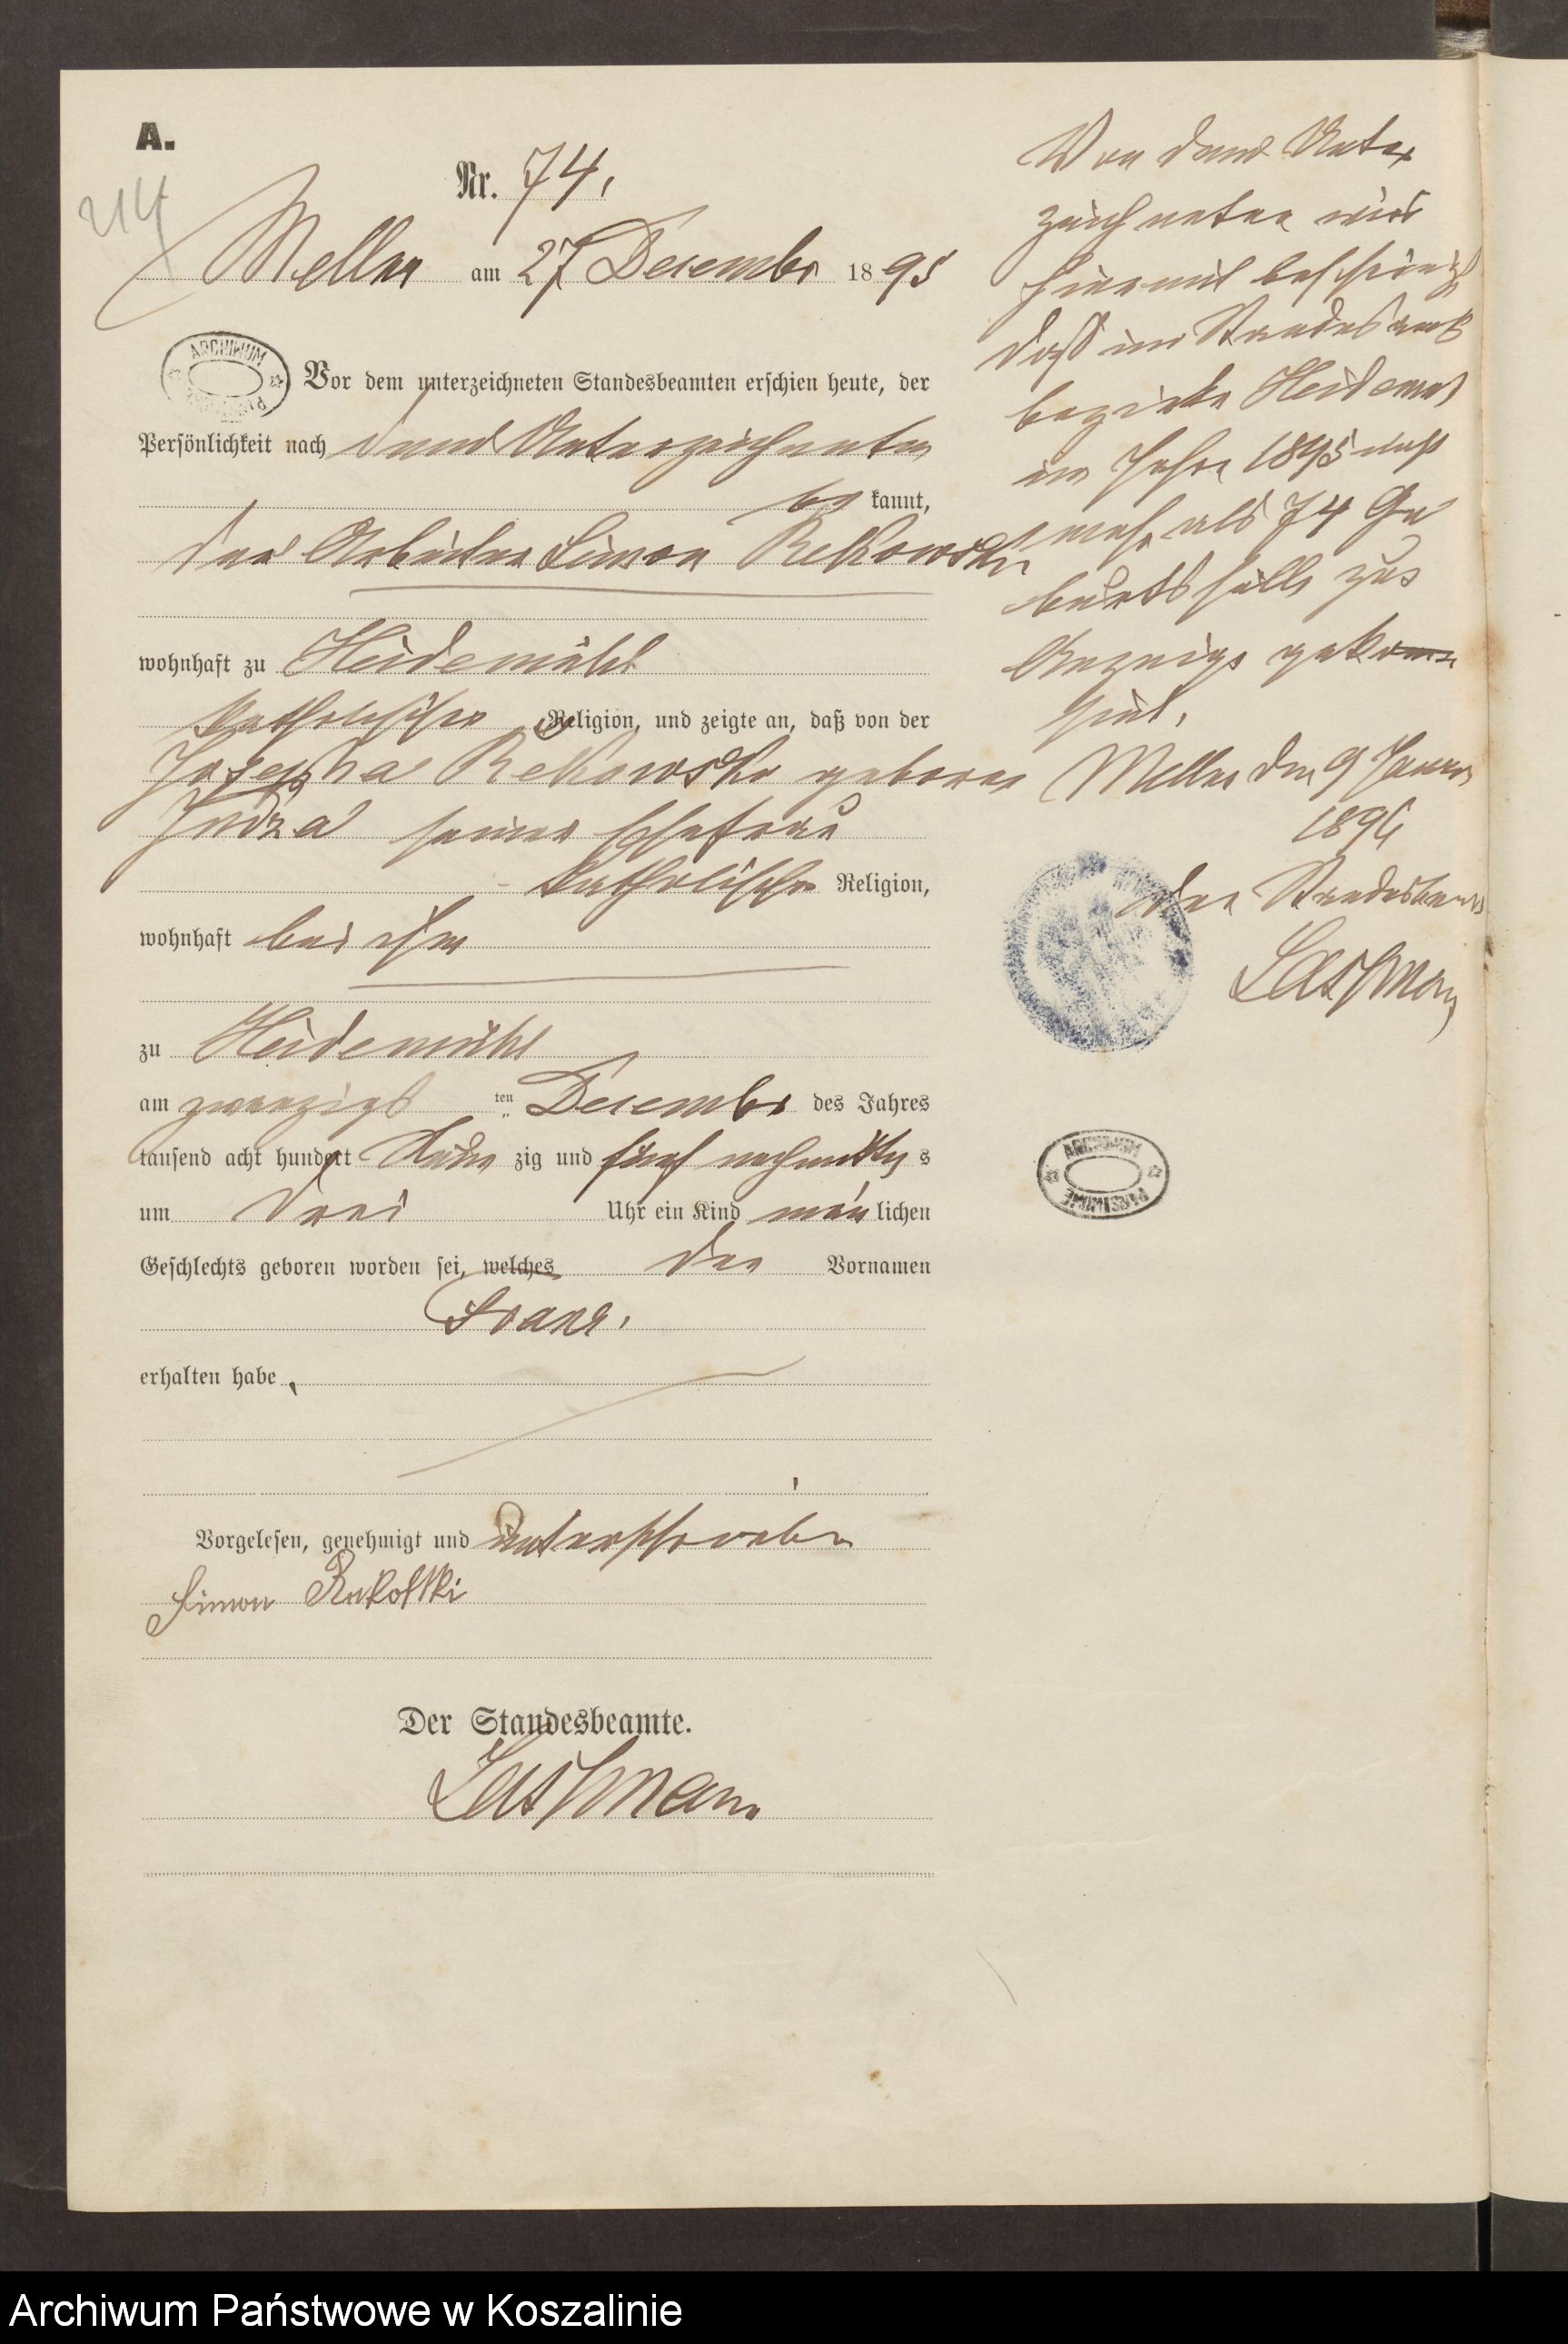 A.
214
Nr. 74,
Meller am 27 Decembr 1895
ARCHIWUM PAŃSTWOWE
Vor dem unterzeichneten Standesbeamten erschien heute, der
Persönlichkeit nach dem Unterzeichneten
be kannt,
der Arbeiter Simon Rekowski
wohnhaft zu Heidemühl
katholischer Religion, und zeigte an, daß von der
Josepha Rekowski geborene
seiner Ehefrau
katholischer Religion,
wohnhaft bei ihm
zu Heidemühl
am zwanzigs ten Decembr des Jahres
tausend acht hundert neun zig und fünf nachmittag s
um drei Uhr ein Kind män lichen
Geschlechts geboren worden sei, welches den Vornamen
Franz.
erhalten habe.
Vorgelesen, genehmigt und unterschrieben
Simon
Der Standesbeamte.
Von dem Unter
zeichneten wird
hiermit bescheinigt
daß im Standesamts
bezirke
im Jahre 1895 nicht
mehr als 74 Ge
burtsfälle zur
Anzeige gekomm
sind.
Meller den 9 Januar
1896
Der Standesbeamte
ARCHIWUM PAŃSTWOWE
Archiwum Państwowe w Koszalinie